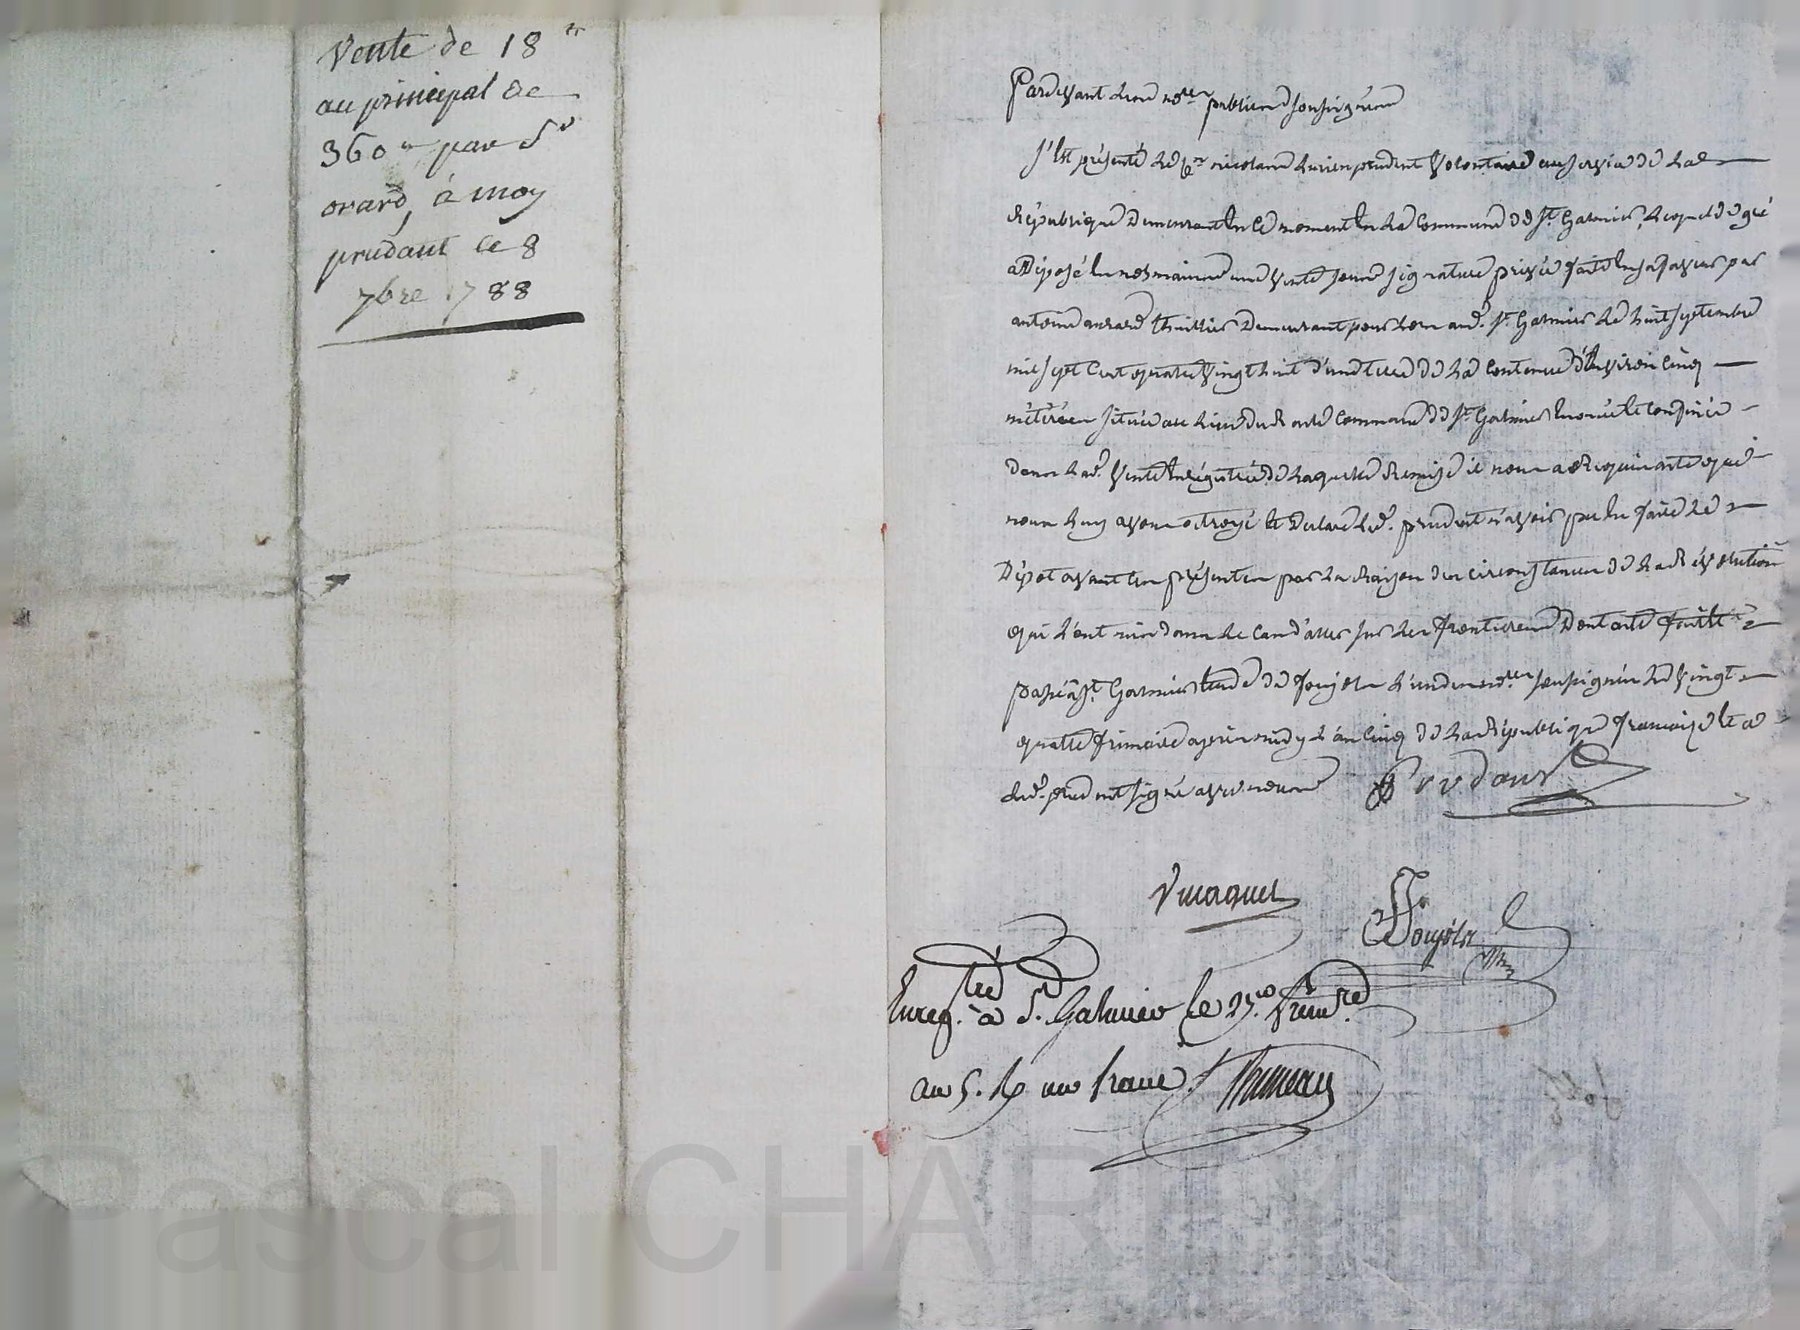 Vente de 18
au principal de
360 par Sr
orard, à moy
prudant le 8
7bre 1788
Pardevant les nores publics soussignés
s'est présenté le cen nicolas prudent volontaire au service de la
république demeurant en ce moment en la commune de St Galmier, lequel de gré
a déposé en nos mains une vente sous signature privée faite en sa faveur par
antoine orard huissier demeurant pour lors aud. St Galmier le huit septembre
mil sept cent quatre vingt huit d'une terre de la contenue d'environ cinq
métérées située au commune de St Galmier et confinée
dans lad. vente enregistrée de laquelle remise il nous a requis acte que
nous luy avons octroyé et déclare led. prudent n'avoir pu en faire le
Dépot avant ces présentes par la raison des circonstances de la révolution
qui l'ont mis dans le cas d'aller sur les frontieres Dont acte fait et
passé à St Galmier etude de Poujols l'un des nores soussignés le vingt
quatre frimaire après midy l'an cinq de la république française et a
led. prudent signé avec nous
Prudant
Poujols
Enreg.tré à St. Galmier le 25. frim.re
an 5. R un franc
Pascal CHARTYRON